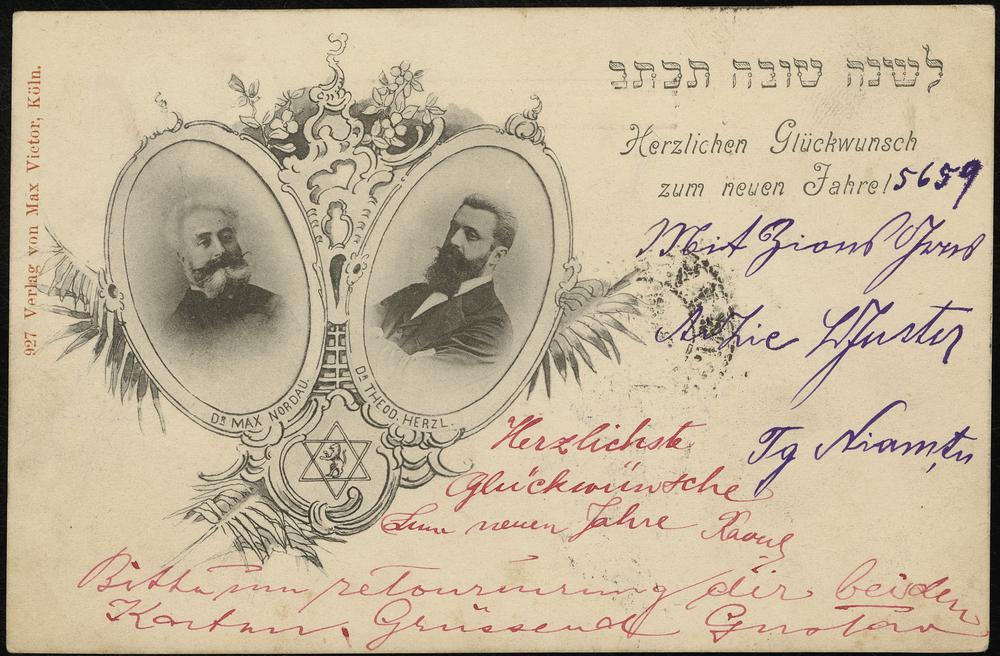 927 Verlag von Max Victor, Köln.
לשנה טובה תכתב
Herzlichen Glückwunsch
zum neuen Jahre! 5659
Mit Zions
Tg Niamțu
DR MAX NORDAU.
DR THEOD. HERZL.
Herzlichste
glückwünsche
Zum neuen Jahre Raoul
Bitte um retournirung dir beiden
Karten. Grüssend Gustav